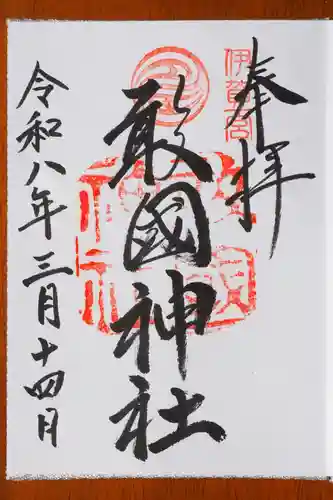 奉拝
伊賀一宮
敢國神社
令和八年三月十四月